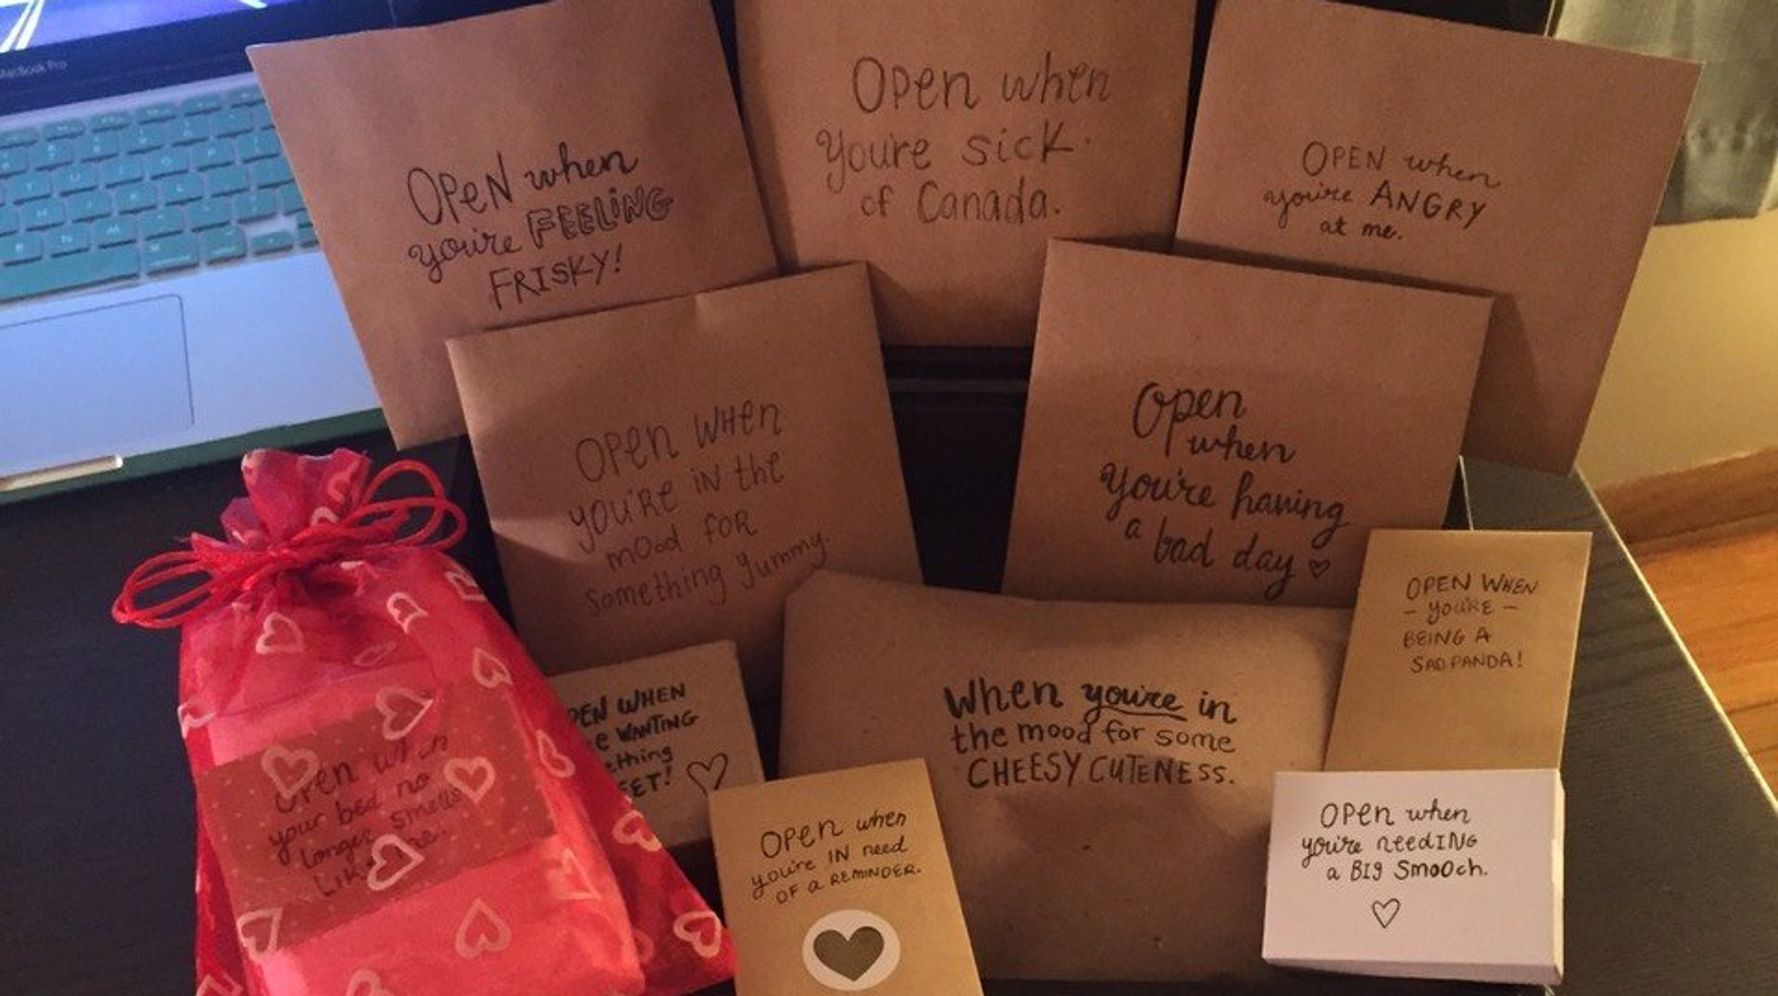 MacBook Pro
OPEN when
you're FEELING
FRISKY!
Open when
you're sick
of Canada.
OPEN when
you're ANGRY
at me.
OPEN WHEN
YOU'RE IN the
mood FOR
something yummy.
Open
when
you're having
a bad day
OPEN WHEN
- YOU'RE -
BEING A
SAD PANDA!
WHEN
WANTING
When you're in
the mood for some
CHEESY CUTENESS.
Open when
your bed no
longer smells
like me.
OPEN when
you're IN need
OF a REMINDER.
OPEN when
you're needING
a BIG SmOOch.